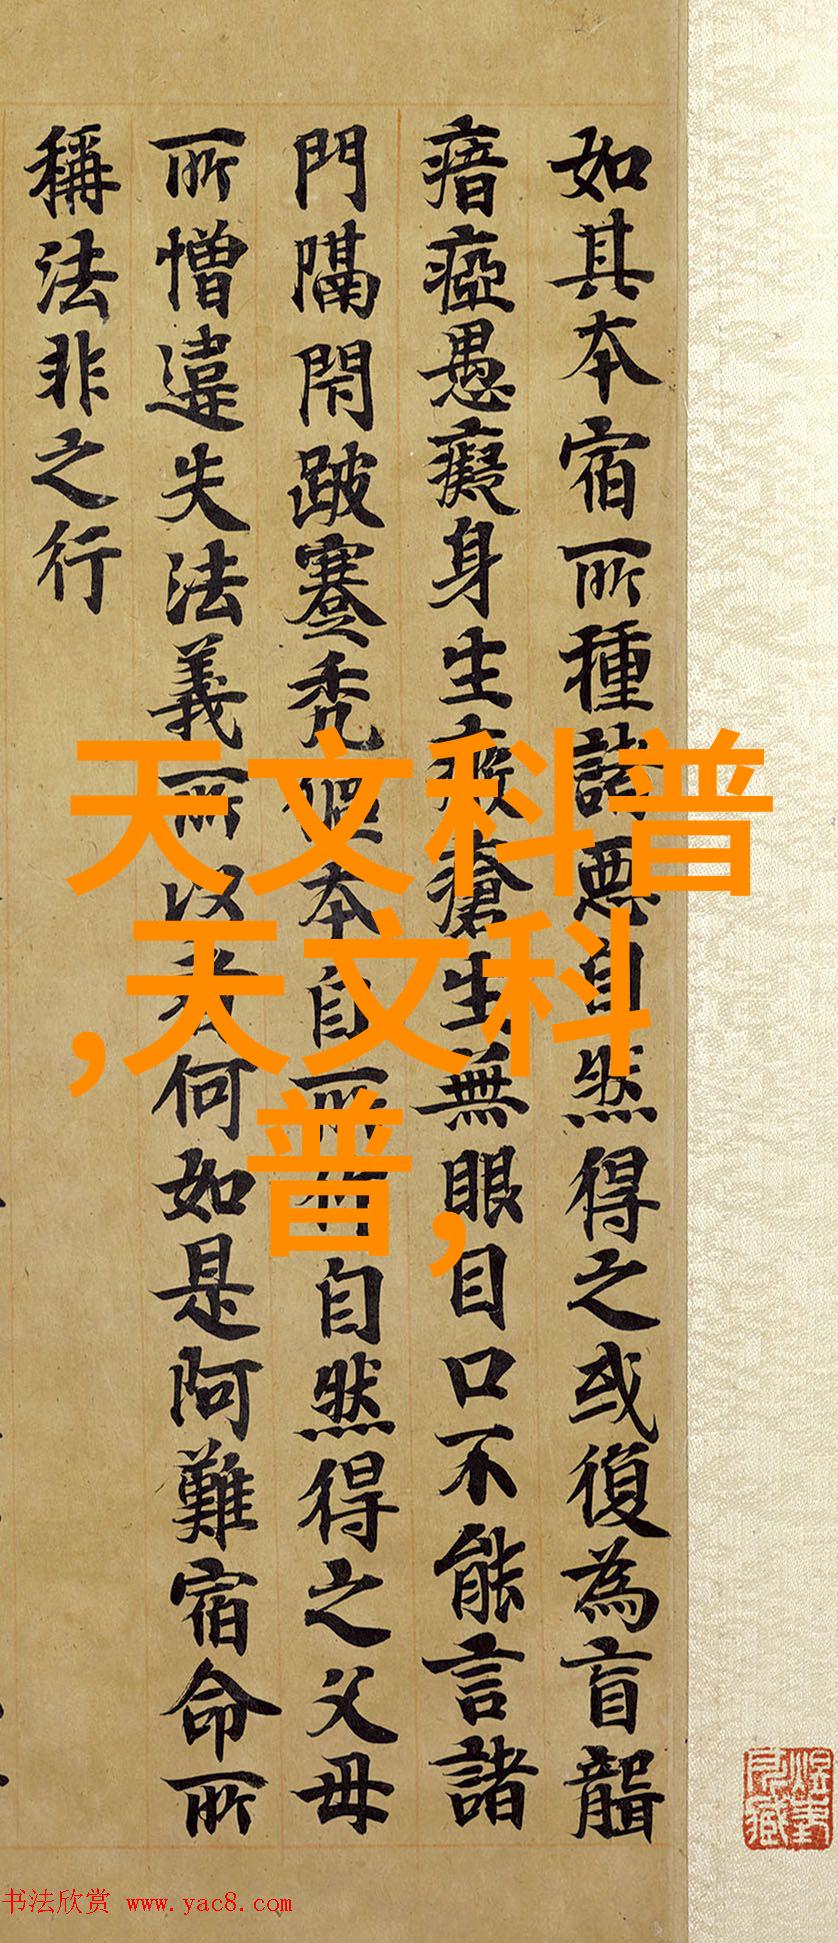 如其本宿所種諸惡自然得之或復為盲聾
瘖瘂愚癡身生瘡生無眼目口不能言諸
門隔閇跛蹇禿傴本自所作自然得之父母
所憎違失法義所以者何如是阿難宿命所
稱法非之行
天文科普
,天文科
普,
书法欣赏 www.yac8.com